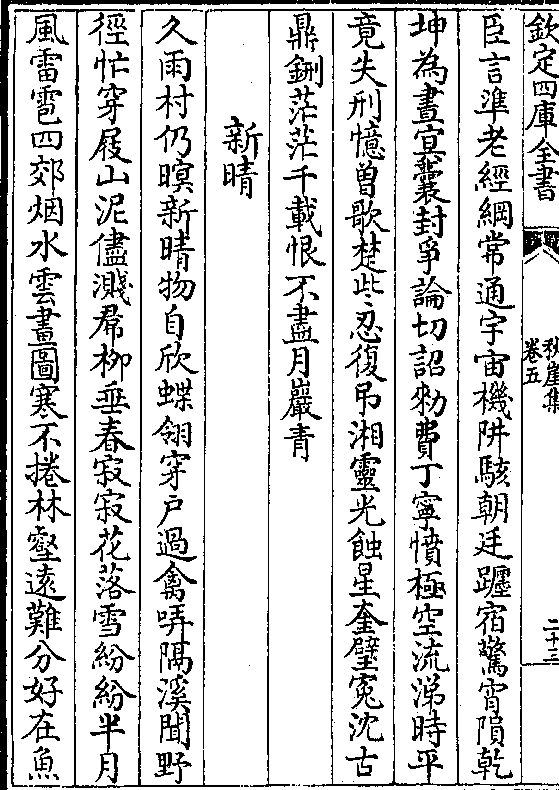 欽定四庫全書
秋崖集
卷五
二十三
臣言準老經綱常通宇宙機阱駭朝廷躔宿驚宵隕乾
坤為晝冥囊封爭論切詔勑費丁寧憤極空流涕時平
竟失刑憶曽歌楚些忍復弔湘靈光蝕星奎璧寃沈古
鼎鉶茫茫千載恨不盡月巖青
新晴
久雨村仍暝新晴物自欣蝶翎穿戸過禽哢隔溪聞野
徑忙穿屐山泥儘濺帬柳垂春寂寂花落雪紛紛半月
風雷雹四郊烟水雲畫圖寒不捲林壑遠難分好在魚